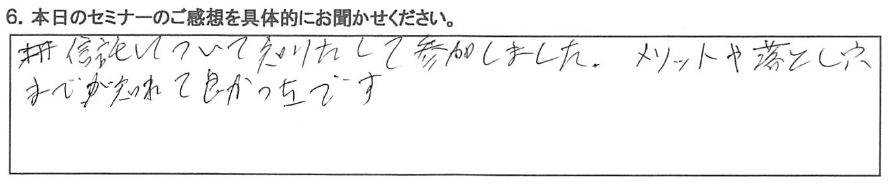 6. 本日のセミナーのご感想を具体的にお聞かせください。
信託について知りたくて参加しました。 メリットや落とし穴
まで知れて良かったです